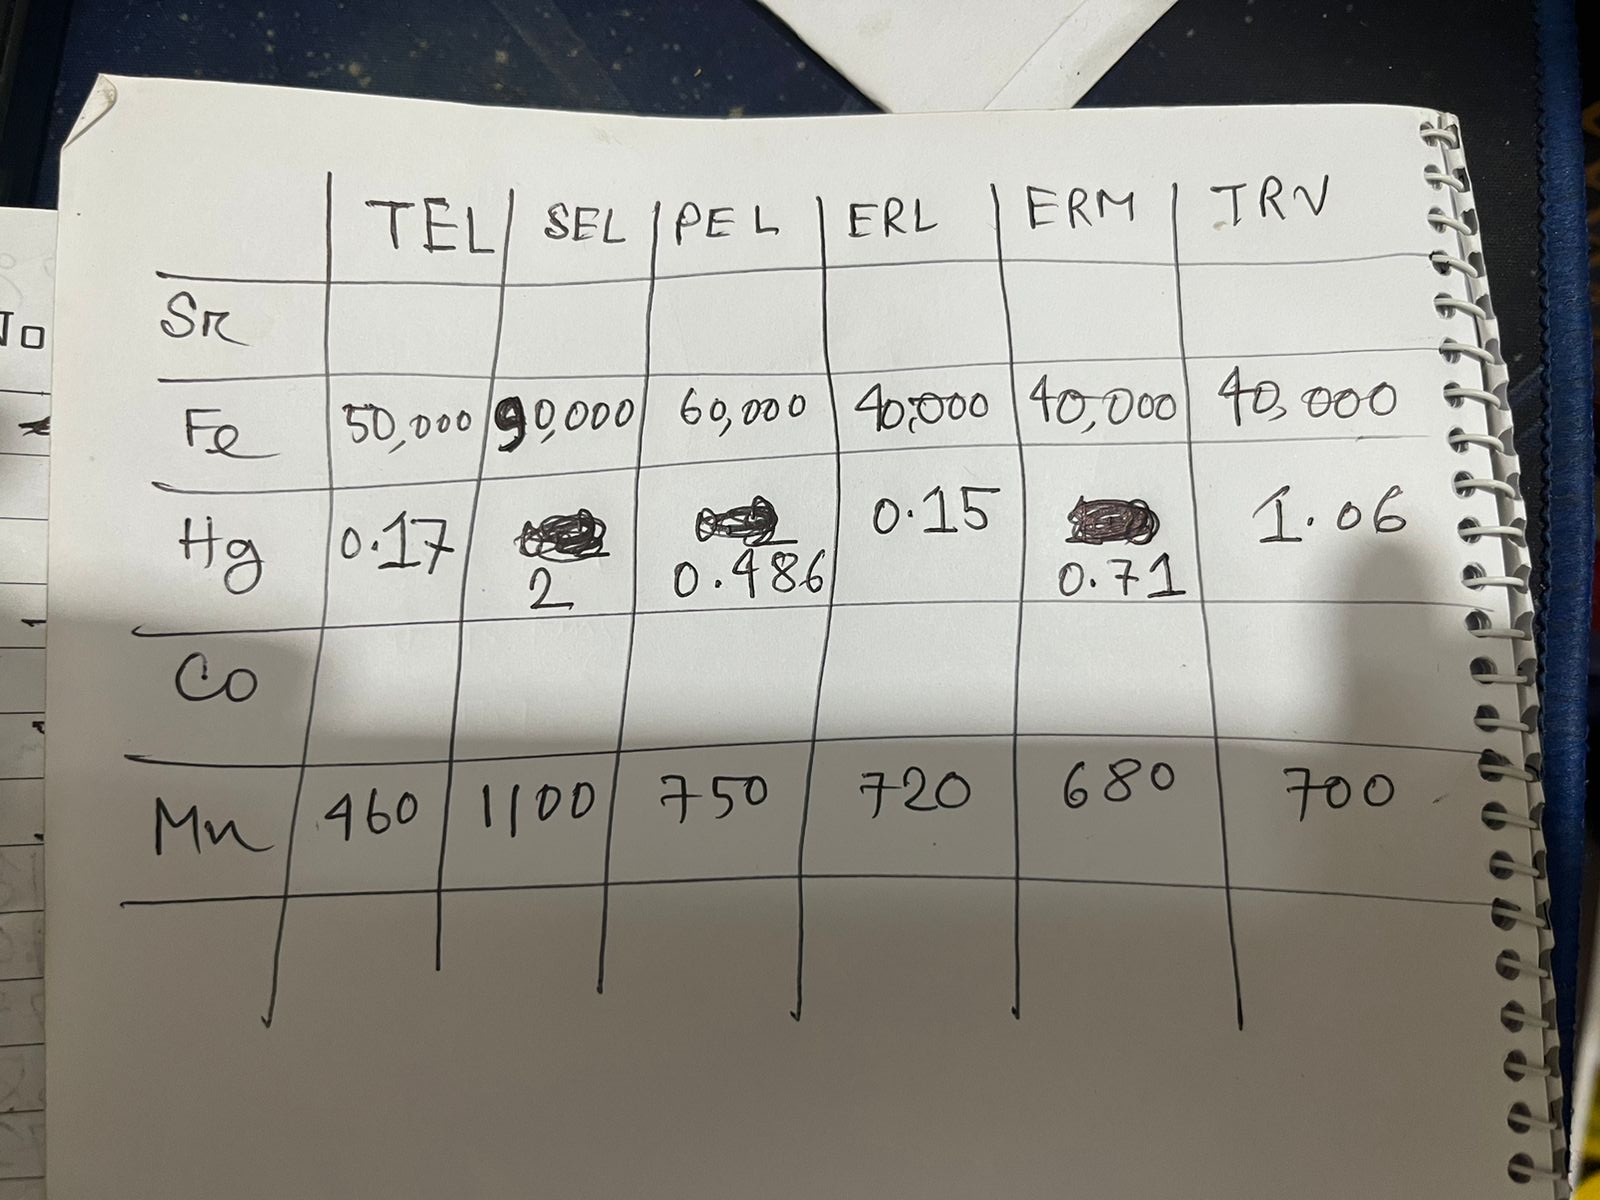 TEL SEL PEL ERL ERM TRV
Sr
Fe 50,000 90,000 60,000 40,000 40,000 40,000
Hg 0.17 2 0.486 0.15 0.71 1.06
Co
Mn 460 1100 750 720 680 700